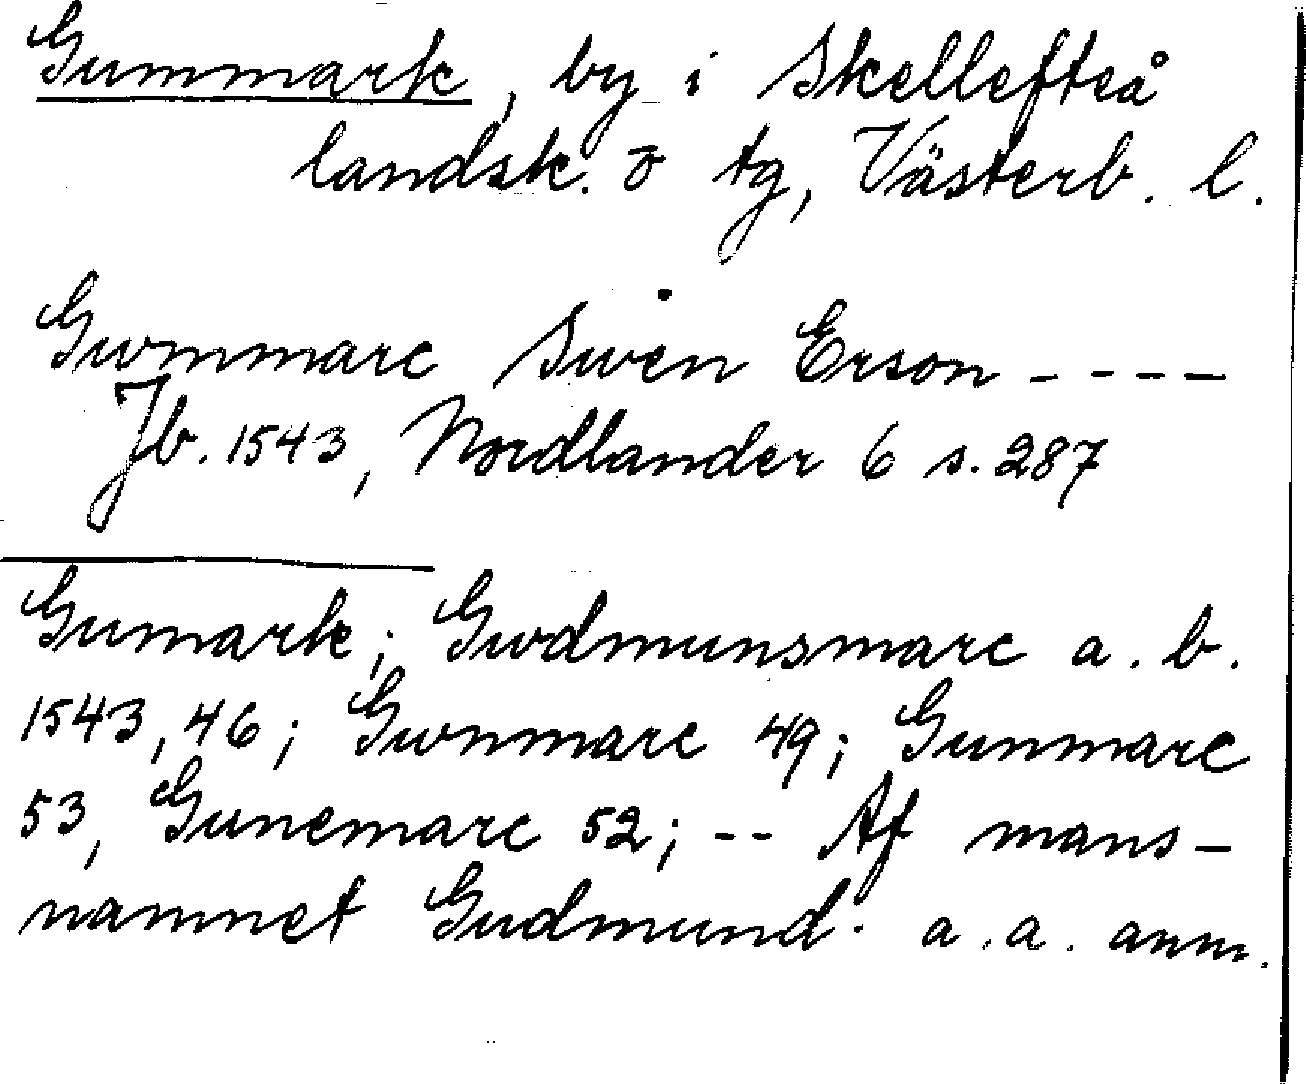 Gummark, by i Skellefteå
landsk. o tg, Västerb. l.
Gwmmarc Swen Erson ----
Jb. 1543, Nordlander 6 s. 287
Gumark; Gwdmunsmarc a. b.
1543, 46; Gwnmarc 49; Gunmarc
53, Gunemarc 52; -- Af mans-
namnet Gudmund. a. a. anm.